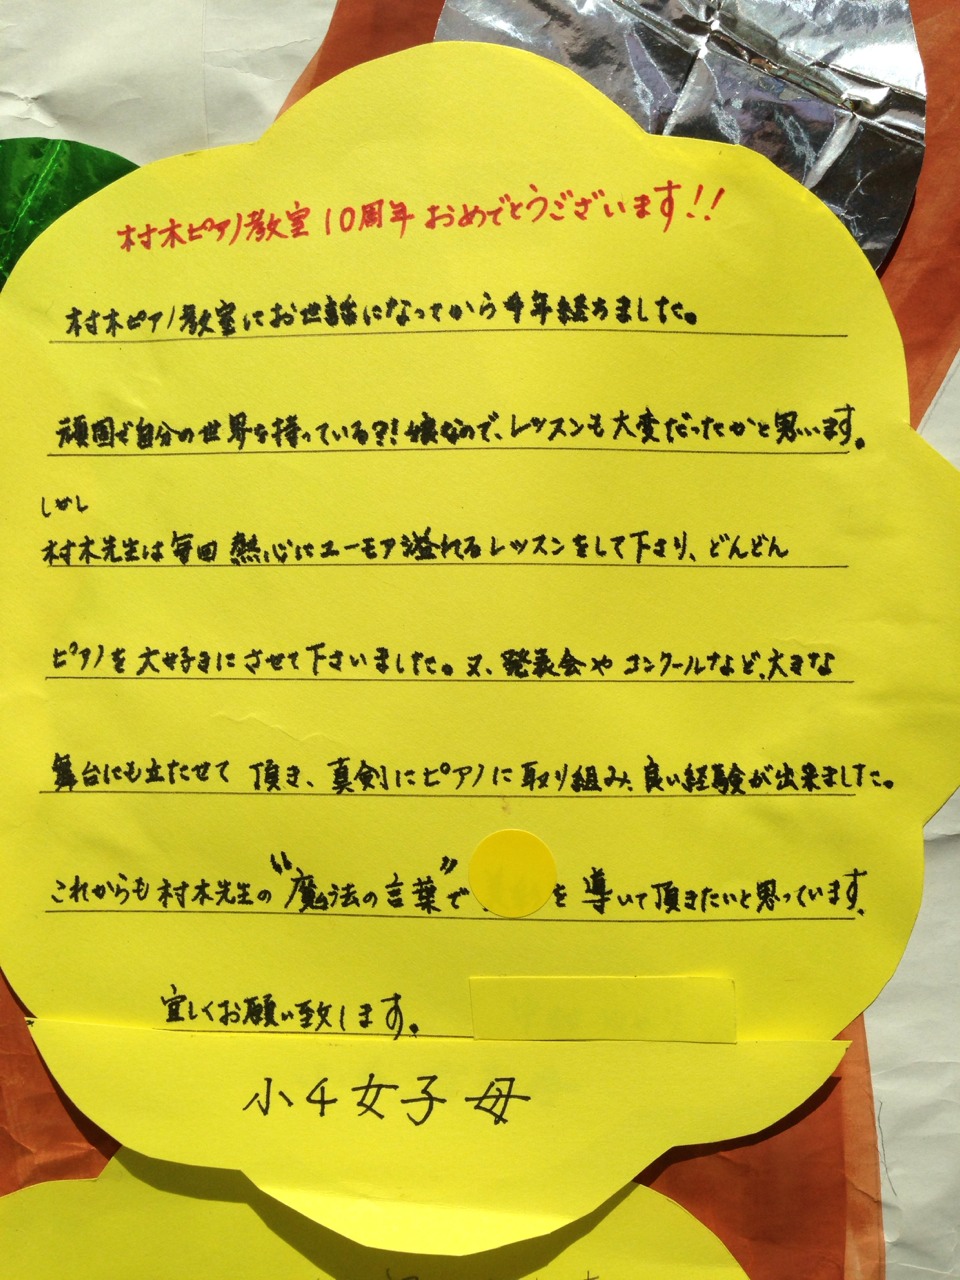 村木ピアノ教室10周年おめでとうございます!!
村木ピアノ教室にお世話になってから4年経ちました。
頑固で自分の世界を持っている?!娘なので、レッスンも大変だったかと思います。
しかし
村木先生は毎回熱心にユーモア溢れるレッスンをして下さり、どんどん
ピアノを大好きにさせて下さいました。又、発表会やコンクールなど、大きな
舞台にも立たせて頂き、真剣にピアノに取り組み、良い経験が出来ました。
これからも村木先生の"魔法の言葉"で、を導いて頂きたいと思っています。
宜しくお願い致します。
小4女子母